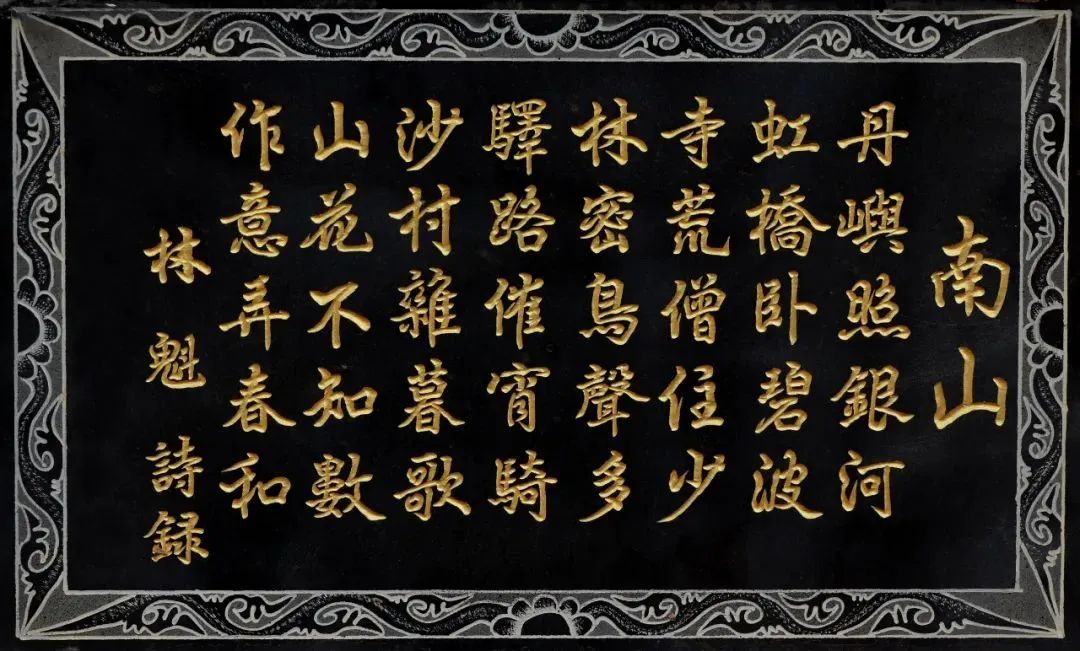 南山
丹嶼照銀河
虹橋卧碧波
寺荒僧住少
林密鳥聲多
驛路催宵騎
沙村雜暮歌
山花不知數
作意弄春和
林魁詩録